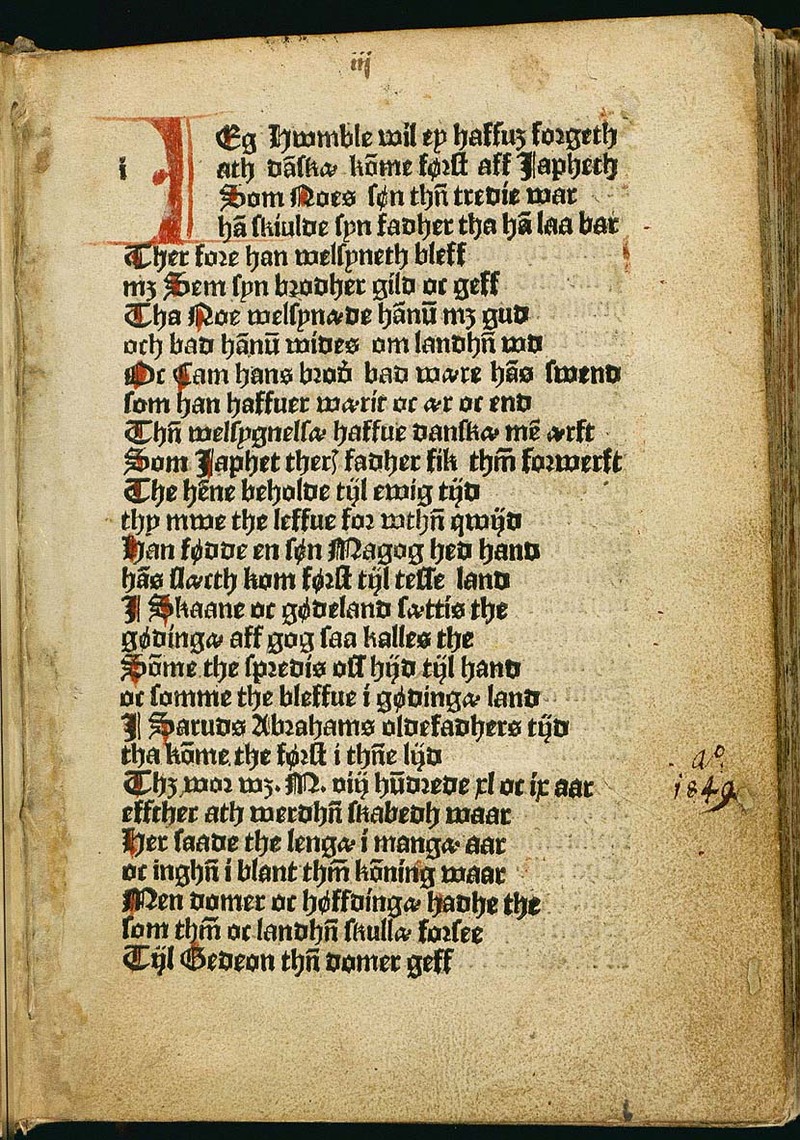 iij
i
IEg Hwmble wil ey haffuꝫ forgeth
ath dāskæ kōme først aff Japheth
Som Noes søn thn̄ tredie war
hā skiulde syn fadher tha hā laa bar
Ther fore han welsyneth bleff
mꝫ Sem syn brodher gild oc geff
Tha Noe welsynæde hānū mꝫ gud
och bad hānū wides om landhn̄ wd
Oc Cam hans brod̄ bad wære hās swend
som han haffuer wærit oc ær oc end
Thn̄ welsygnelsæ haffue danskæ mē ærft
Som Japhet thers fadher fik thm̄ forwerft
The hēne beholde tijl ewig tijd
thy mwe the leffue for wthn̄ qwijd
Han fødde en søn Magog hed hand
hās slæcth kom først tijl tesse land
I Skaane oc gødeland sættis the
gødingæ aff gog saa kalles the
Sōme the spredis oss hijd tijl hand
oc somme the bleffue i gødingæ land
I Saruds Abrahams oldefadhers tijd
tha kōme the først i thn̄e lijd
Thꝫ wor wꝫ. M. viij hūdrede xl oc ix aar
effther ath werdhn̄ skabedh waar
Her saade the lengæ i mangæ aar
oc inghn̄ i blant thm̄ kōning waar
Men domer oc høffdingæ hadhe the
som thm̄ oc landhn̄ skullæ forsee
Tijl Gedeon thn̄ domer geff
Aº
1849